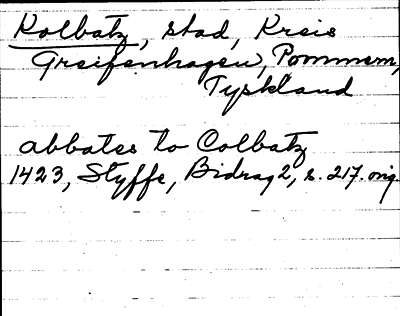 Kolbatz, stad, Kreis
Greifenhagen, Pommern,
Tyskland
abbates to Colbatz
1423, Styffe, Bidrag 2, s. 217. orig.